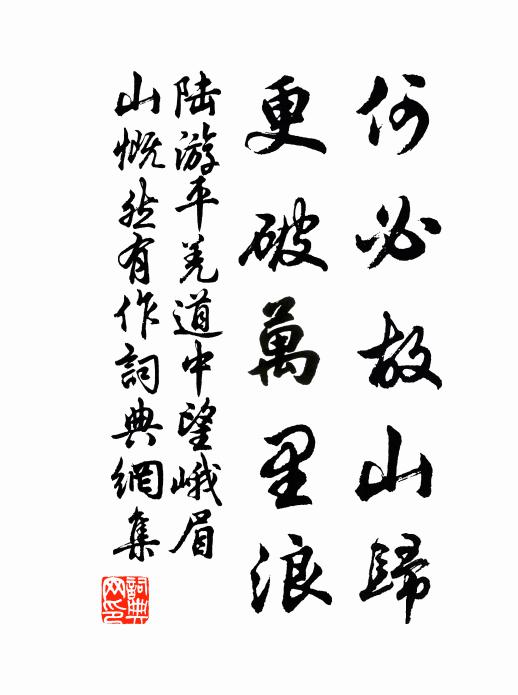 何必故山歸
更破萬里浪
陸游平羌道中望峨眉
山慨然有作詞典網集
詞典網印